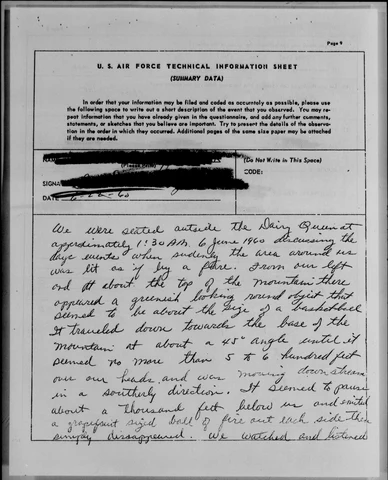 Page 9
U. S. AIR FORCE TECHNICAL INFORMATION SHEET
(SUMMARY DATA)
In order that your information may be filed and coded as accurately as possible, please use
the following space to write out a short description of the event that you observed. You may re-
peat information that you have already given in the questionnaire, and add any further comments,
statements, or sketches that you believe are important. Try to present the details of the observa-
tion in the order in which they occurred. Additional pages of the same size paper may be attached
if they are needed.
(Do Not Write in This Space)
CODE:
SIGNA
DATE
We were seated outside the Dairy Queen at
approximately 1:30 AM. 6 June 1960 discussing the
days events when sudenly the area around us
was lit as if by a flare. From our left
and at about the top of the mountain there
appeared a greenish looking round objist that
seemed to be about the size of a basketball
It traveled down towards the base of the
mountain at about a 45° angle until it
seemed no more than 5 to 6 hundred feet
over our heads and was moving down stream
in a southerly direction. It seemed to pause
about a thousand feet below us and emited
a grapefruit sized ball of fire out each side then
simply dissappeared. We watched and listened